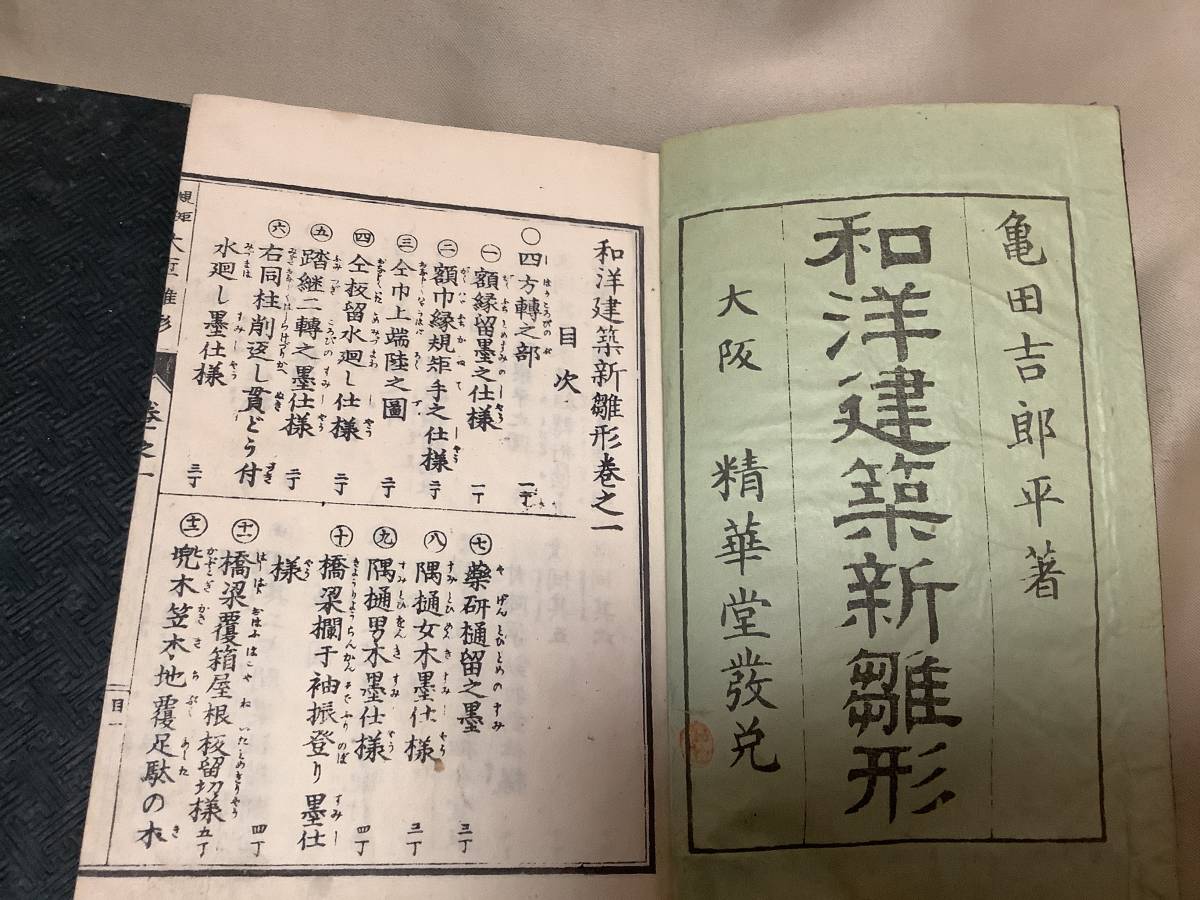 亀田吉郎平著
和洋建築新雛形
大阪 精華堂發兌
和洋建築新雛形巻之一
目次
〇四方轉之部 一丁
㊀額縁留墨之仕様 一丁
㊁額巾縁規矩手之仕様 二丁
㊂仝巾上端陸之圖 二丁
㊃仝板留水廻し仕様 二丁
㊄踏継二轉之墨仕様 二丁
㊅右同柱削返し貫どう付
水廻し墨仕様 三丁
㊆藥研樋留之墨 三丁
㊇隅樋女木墨仕様 三丁
㊈隅樋男木墨仕様 四丁
㊉橋梁欄干袖振登り墨仕
様 四丁
十一 橋梁覆箱屋根板留切様 五丁
十二 兜木笠木地覆足駄の木
巻之一
目一